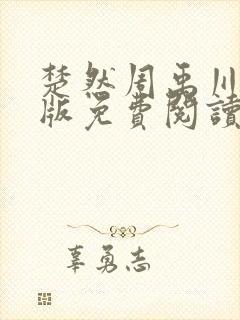 楚然周禹川
版免費閱讀
辜勇志